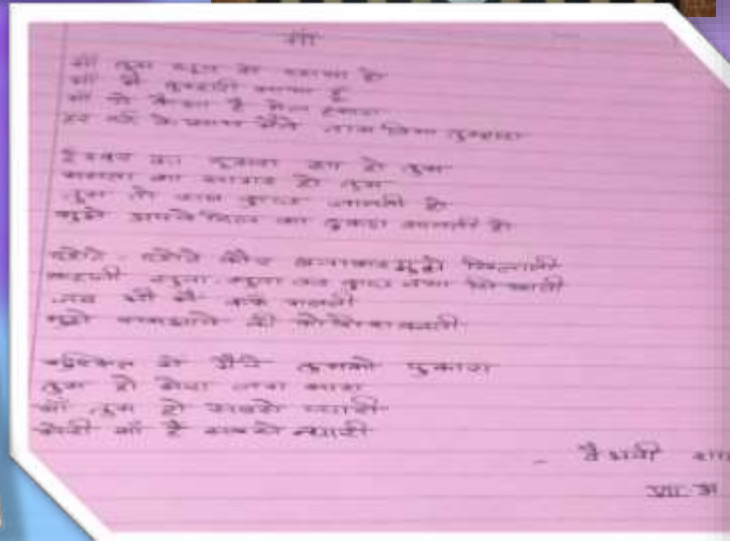 माँ
माँ तुम बहुत हो
माँ मैं तुम्हारी हूँ
माँ ये कैसा है मेल हमारा
हर के साथ मैंने नाम लिया तुम्हारा
ईश्वर का दूसरा रूप हो तुम
ममता का सागर हो तुम
तुम तो सब कुछ जानती हो
मुझे अपने दिल का टुकड़ा मानती हो
छोटे-छोटे कौर बनाकर मुझे खिलाती
कहानी सुना-सुना कर कुछ नया सिखाती
जब भी मैं
मुझे समझाने की कोशिश करती
मुश्किल में मैंने तुमको पुकारा
तुम हो मेरा जग सारा
माँ तुम हो सबसे न्यारी
मेरी माँ है सबसे न्यारी
- वैभवी